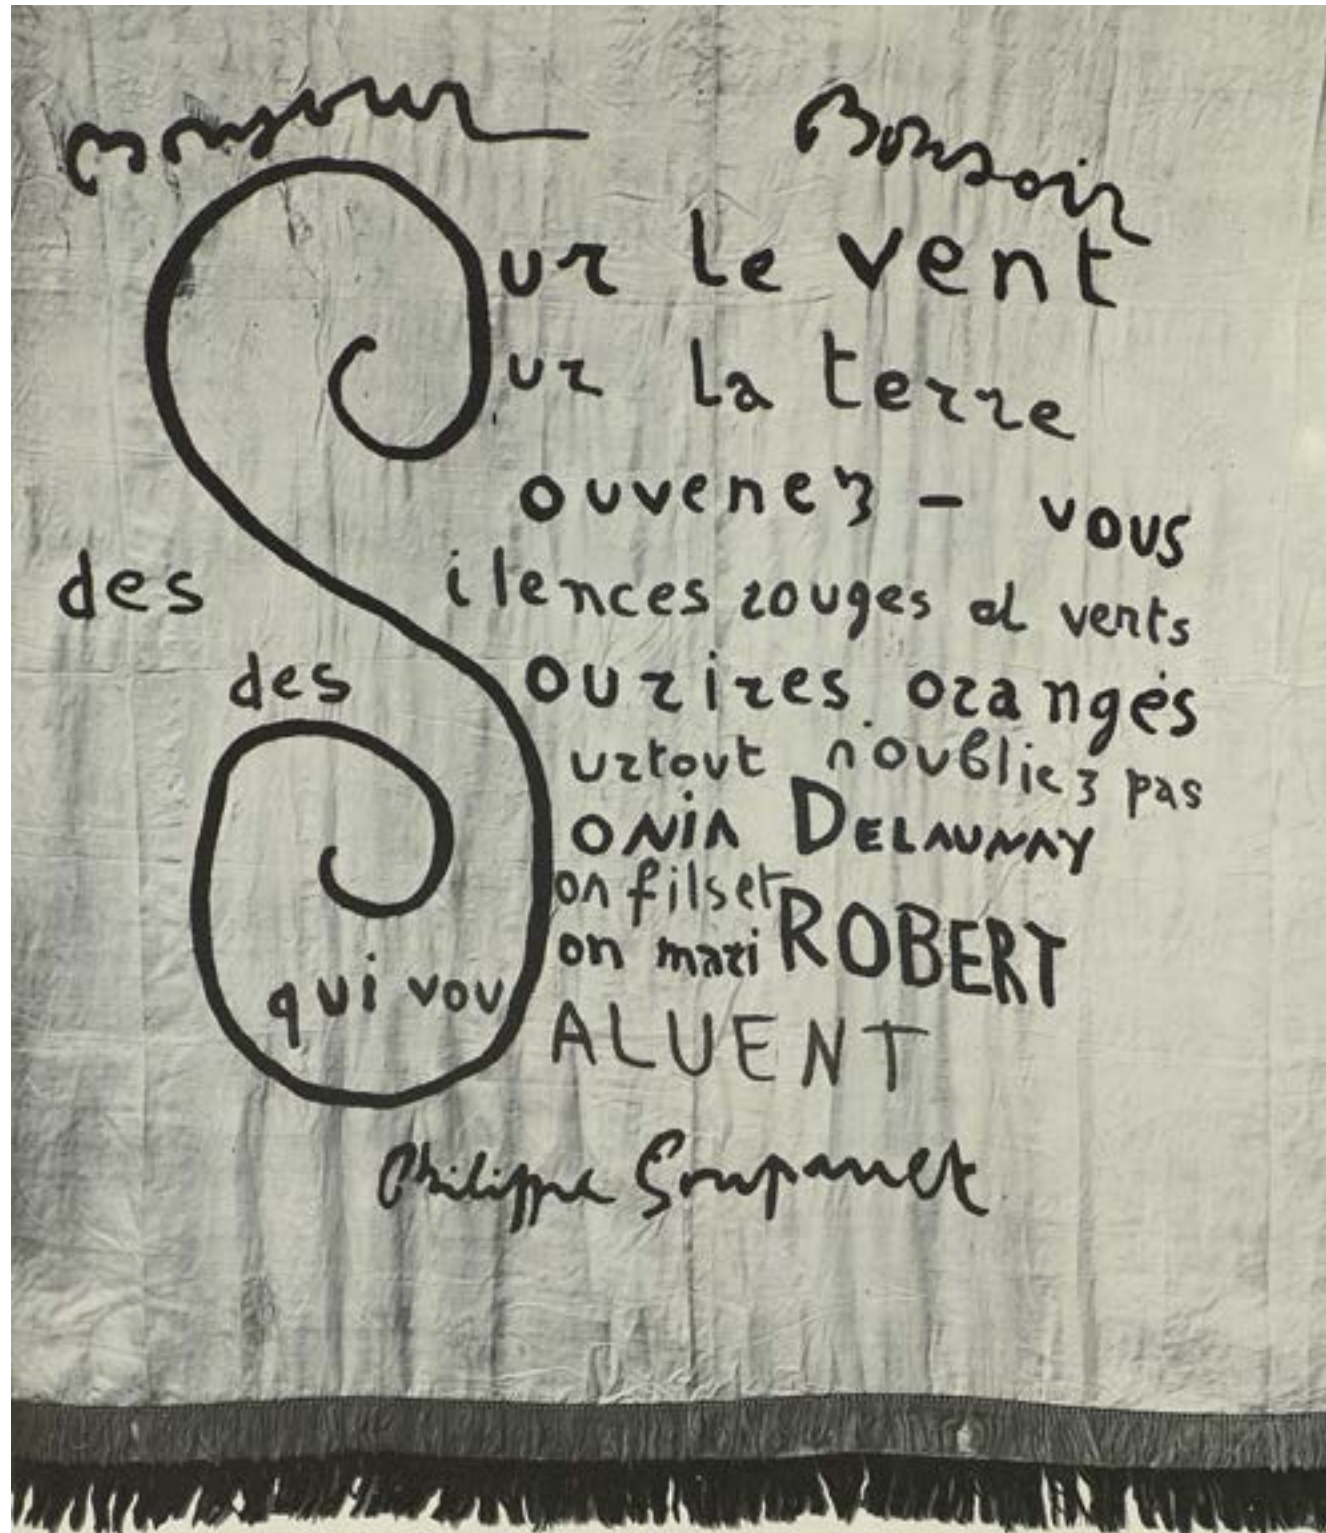 Bonjour Bonsoir
Sur le vent
ur la terre
ouvenez - vous
des ilences rouges et verts
des ourires orangés
urtout n'oubliez pas
ONIA DELAUNAY
on fils et
on mari ROBERT
qui vou ALUENT
Philippe Soupault